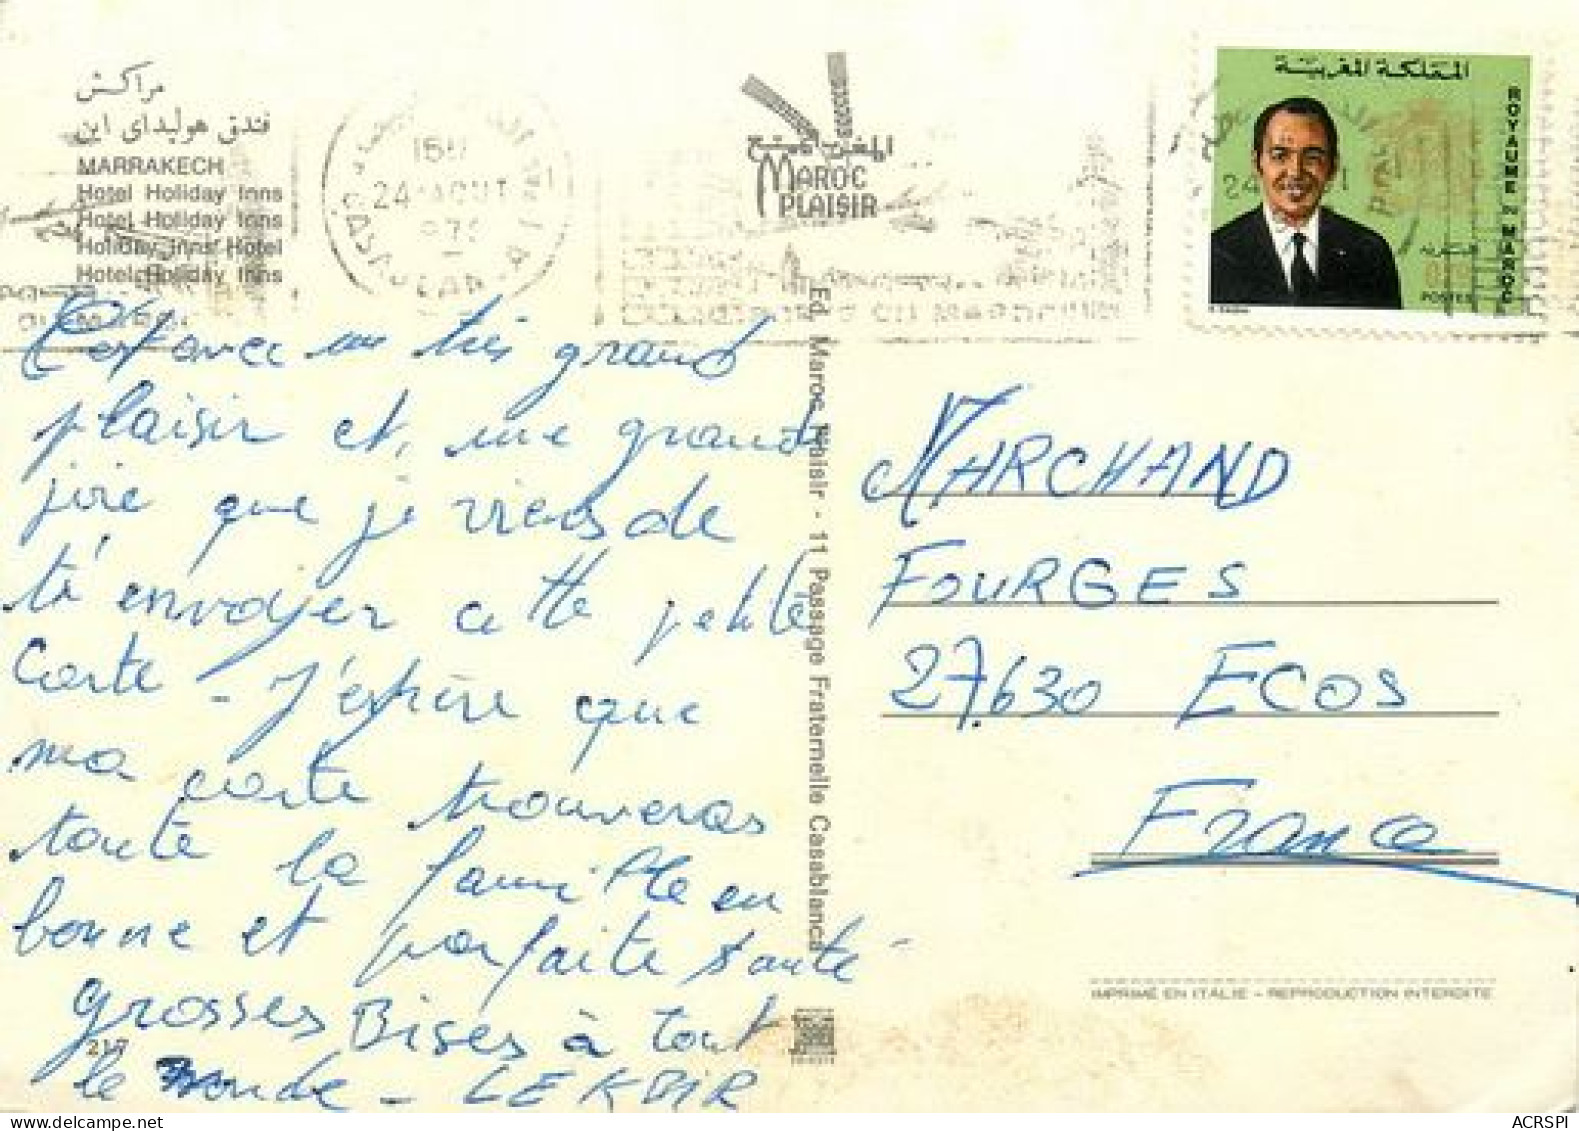 مراكش
فندق هوليداي اين
MARRAKECH
Hotel Holiday Inns
Hotel Holiday Inns
Holiday Inns Hotel
Hotel Holiday Inns
24 AOUT
المغرب متع
MAROC
PLAISIR
المملكة المغربية
ROYAUME DU MAROC
POSTES
C'est avec un très grand
plaisir et, une grand
joire que je viens de
té envoyer cette petite
Carte - J'espère que
ma carte trouveras
toute la famille en
bonne et parfaite santé
grosses Bises à tout
le monde - LEKBIR
217
Ed. Maroc Plaisir - 11 Passage Fraternelle Casablanca
MARCHAND
FOURGES
27.630 ECOS
France
IMPRIMÉ EN ITALIE - REPRODUCTION INTERDITE
ACRSPI